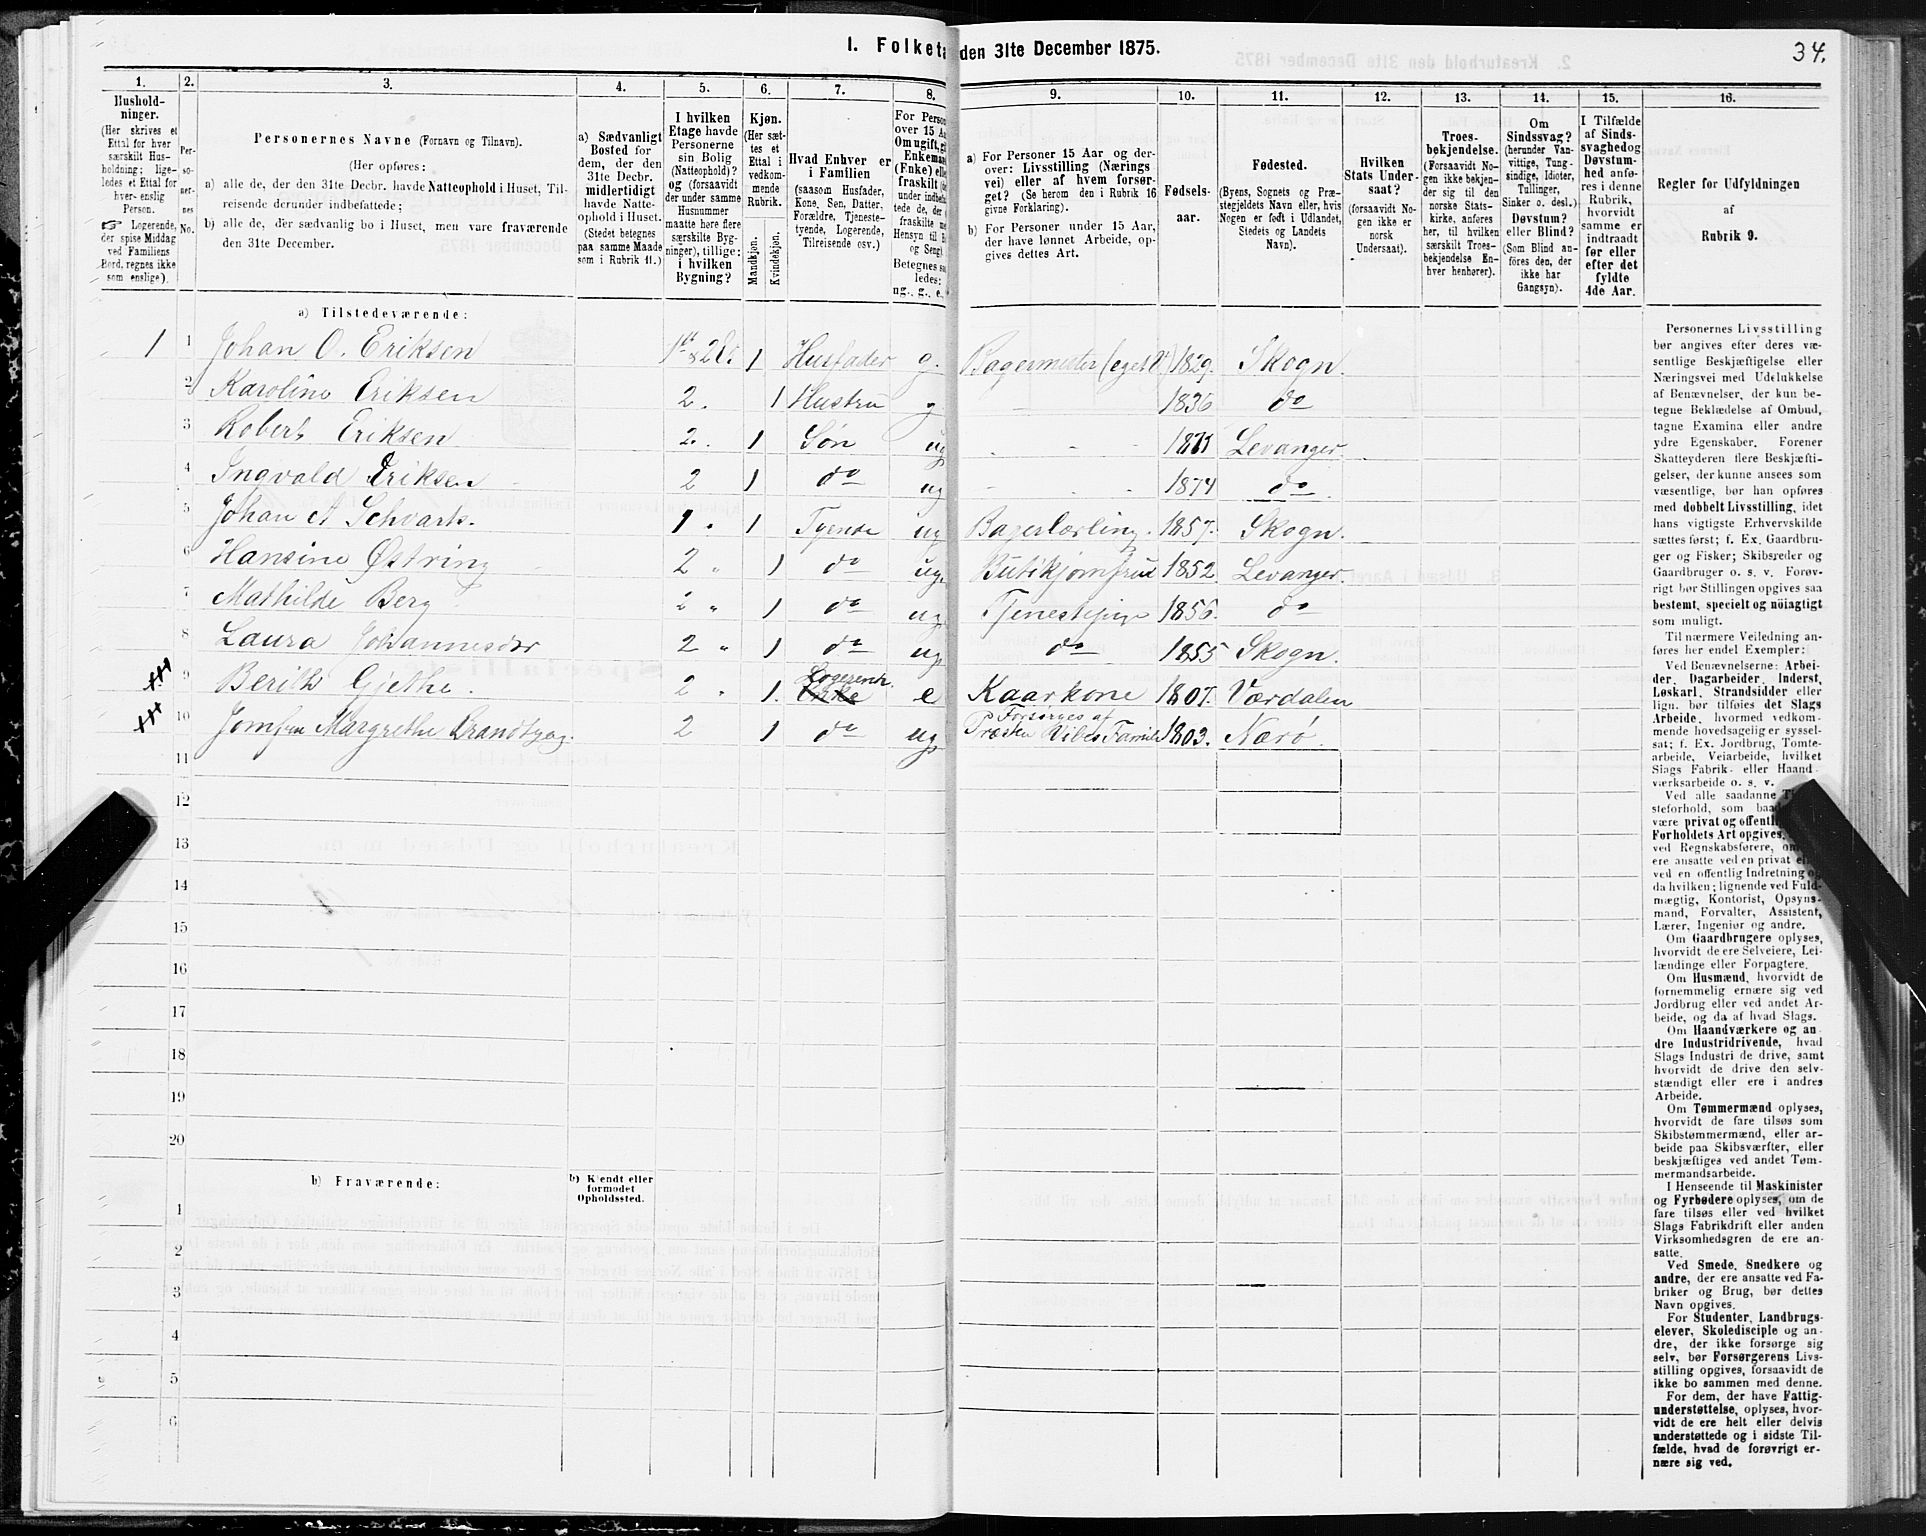 1. Folketa den 31te December 1875.
34.
1. 2. 3. 4. 5. 6. 7. 8. 9. 10. 11. 12. 13. 14. 15. 16.
Hushold-
ninger.
(Her skrives et
Ettal for hver
særskilt Hus-
holdning; lige-
ledes et Ettal for
hver enslig
Person.
☞ Logerende,
der spise Middag
ved Familiens
Bord, regnes ikke
som enslige).
Per-
so-
ner-
nes
No.
Personernes Navne (Fornavn og Tilnavn).
(Her opføres:
a) alle de, der den 31te Decbr. havde Natteophold i Huset, Til-
reisende derunder indbefattede;
b) alle de, der sædvanlig bo i Huset, men vare fraværende
den 31te December.
a) Sædvanligt
Bosted for
dem, der den
31te Decbr.
midlertidigt
havde Natte-
ophold i Huset.
(Stedet betegnes
paa samme Maade
som i Rubrik 11.)
I hvilken
Etage havde
Personerne
sin Bolig
(Natteophold)?
og (forsaavidt
der under samme
Husnummer
maatte høre flere
særskilte Byg-
ninger), tillige:
i hvilken
Bygning?
Kjøn.
(Her sæt-
tes et
Ettal i
vedkom-
mende
Rubrik.
Mandkjøn.
Kvindekjøn.
Hvad Enhver er
i Familien
(saasom Husfader,
Kone, Søn, Datter,
Forældre, Tjeneste-
tyende, Logerende,
Tilreisende osv.)
For Person
over 15 A
Om ugift, g
Enkema
(Enke) elle
fraskilt (
under indbe
tede de, der
fraskilte m
Hensyn til B
og Seng).
Betegnes sa
ledes:
ug., g., e.,
a) For Personer 15 Aar og der-
over: Livsstilling (Nærings
vei) eller af hvem forsør-
get? (Se herom den i Rubrik 16
givne Forklaring).
b) For Personer under 15 Aar,
der have lønnet Arbeide, op-
gives dettes Art.
Fødsels-
aar.
Fødested.
(Byens, Sognets og Præ-
stegjeldets Navn eller, hvis
Nogen er født i Udlandet,
Stedets og Landets
Navn).
Hvilken
Stats Under-
saat?
(forsaavidt No-
gen ikke er
norsk
Undersaat).
Troes-
bekjendelse.
(Forsaavidt No-
gen ikke bekjen-
der sig til den
norske Stats-
kirke, anføres
her, til hvilken
særskilt Troes-
bekjendelse En-
hver henhører).
Om
Sindssvag?
(herunder Van-
vittige, Tung-
sindige, Idioter,
Tullinger,
Sinker o. desl.)
Døvstum?
eller Blind?
(Som Blind an-
føres den, der
ikke har
Gangsyn).
I Tilfælde
af Sinds-
svaghed og
Døvstum-
hed anfø-
res i denne
Rubrik,
hvorvidt
samme er
indtraadt
før eller
efter det
fyldte
4de Aar.
Regler for Udfyldningen
af
Rubrik 9.
a) Tilstedeværende:
1 1 Johan O. Eriksen 1st & 2 Et. 1 Husfader g. Bagermester (eget V.) 1829. Skogn.
2 Karoline Eriksen 2. 1 Hustru g - 1836 do
3 Robert Eriksen 2. 1 Søn ug - Levanger
4 Ingvald Eriksen 2 1 do ug - 1874 do.
5 Johan A Schvarts. 1. 1 Tyende ug Bagerlærling. 1857. Skogn.
6 Hansine Østring 2 " 1 do ug. Butikjomfrue 1852. Levanger.
7 Mathilde Berg 2 " 1 do ug Tjenestepige 1856. do
8 Laura Johannesdtr 2 " 1 do ug do 1855 Skogn.
9 Berith Gjethe. 2 " 1. Logerend. Enke e Kaarkone 1807. Værdalen
10 Jomfru Margrethe Brandtzæg. 2 1 do ug Forsørges af Præsten Vibes Familie 1803. Nærø.
11
12
13
14
15
16
17
18
19
20
b) Fraværende:
b) Kjendt eller
formodet
Opholdssted.
1
2
3
4
5
6
Personernes Livsstilling
bør angives efter deres væ-
sentlige Beskjæftigelse eller
Næringsvei med Udelukkelse
af Benævnelser, der kun be-
tegne Beklædelse af Ombud,
tagne Examina eller andre
ydre Egenskaber. Forener
Skatteyderen flere Beskjæfti-
gelser, der kunne ansees som
væsentlige, bør han opføres
med dobbelt Livsstilling, idet
hans vigtigste Erhvervskilde
sættes først; f. Ex. Gaardbru-
ger og Fisker; Skibsreder og
Gaardbruger o. s. v. Forøv-
rigt bør Stillingen opgives saa
bestemt, specielt og nøiagtigt
som muligt.
Til nærmere Veiledning an-
føres her endel Exempler:
Ved Benævnelserne: Arbei-
der, Dagarbeider, Inderst,
Løskarl, Strandsidder eller
lign. bør tilføies det Slags
Arbeide, hvormed vedkom-
mende hovedsagelig er syssel-
sat; f. Ex. Jordbrug, Tomte-
arbeide, Veiarbeide, hvilket
Slags Fabrik- eller Haand
værksarbeide o. s. v.
Ved alle saadanne
steforhold, som baa
være privat og offentli
Forholdets Art opgives,
ved Regnskabsførere, om
ere ansatte ved en privat el
ved en offentlig Indretning og
da hvilken; lignende ved Fuld-
mægtig, Kontorist, Opsyns-
mand, Forvalter, Assistent,
Lærer, Ingeniør og andre.
Om Gaardbrugere oplyses,
hvorvidt de ere Selveiere, Lei-
lændinge eller Forpagtere.
Om Husmænd, hvorvidt de
fornemmelig ernære sig ved
Jordbrug eller ved andet Ar-
beide, og da af hvad Slags.
Om Haandværkere og an
dre Industridrivende, hvad
Slags Industri de drive, samt
hvorvidt de drive den selv-
stændigt eller ere i andres
Arbeide.
Om Tømmermænd oplyses,
hvorvidt de fare tilsøs som
Skibstømmermænd, eller ar-
beide paa Skibsværfter, eller
beskjæftiges ved andet Tøm-
mermandsarbeide.
I Henseende til Maskinister
og Fyrbødere oplyses, om de
fare tilsøs eller ved hvilket
Slags Fabrikdrift eller anden
Virksomhedsgren de ere an-
satte.
Ved Smede, Snedkere og
andre, der ere ansatte ved Fa-
briker og Brug, bør dettes
Navn opgives.
For Studenter, Landbrugs-
elever, Skoledisciple og an-
dre, der ikke forsørge sig
selv, bør Forsørgerens Livs-
stilling opgives, forsaavidt de
ikke bo sammen med denne.
For dem, der have Fattig-
understøttelse, oplyses, hvor-
vidt de ere helt eller delvis
understøttede og i sidste Til-
fælde, hvad de forøvrigt er-
nære sig ved.